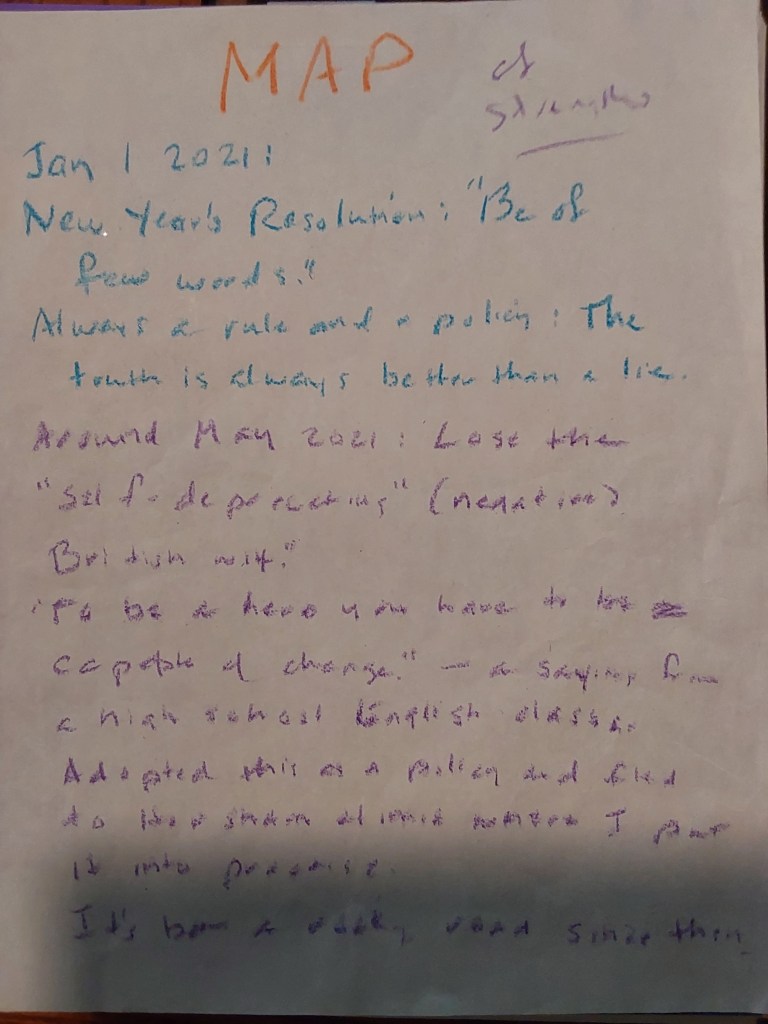 MAP of
strengths
Jan 1 2021:
New Year's Resolution: "Be of
few words."
Always a rule and a policy: The
truth is always better than a lie.
Around May 2021: Lose the
"self-deprecating" (negative)
British wit."
"To be a hero you have to be
capable of change." – a saying from
a high school English class.
Adopted this as a policy and
to I put
it into
It's been a rocky road since then